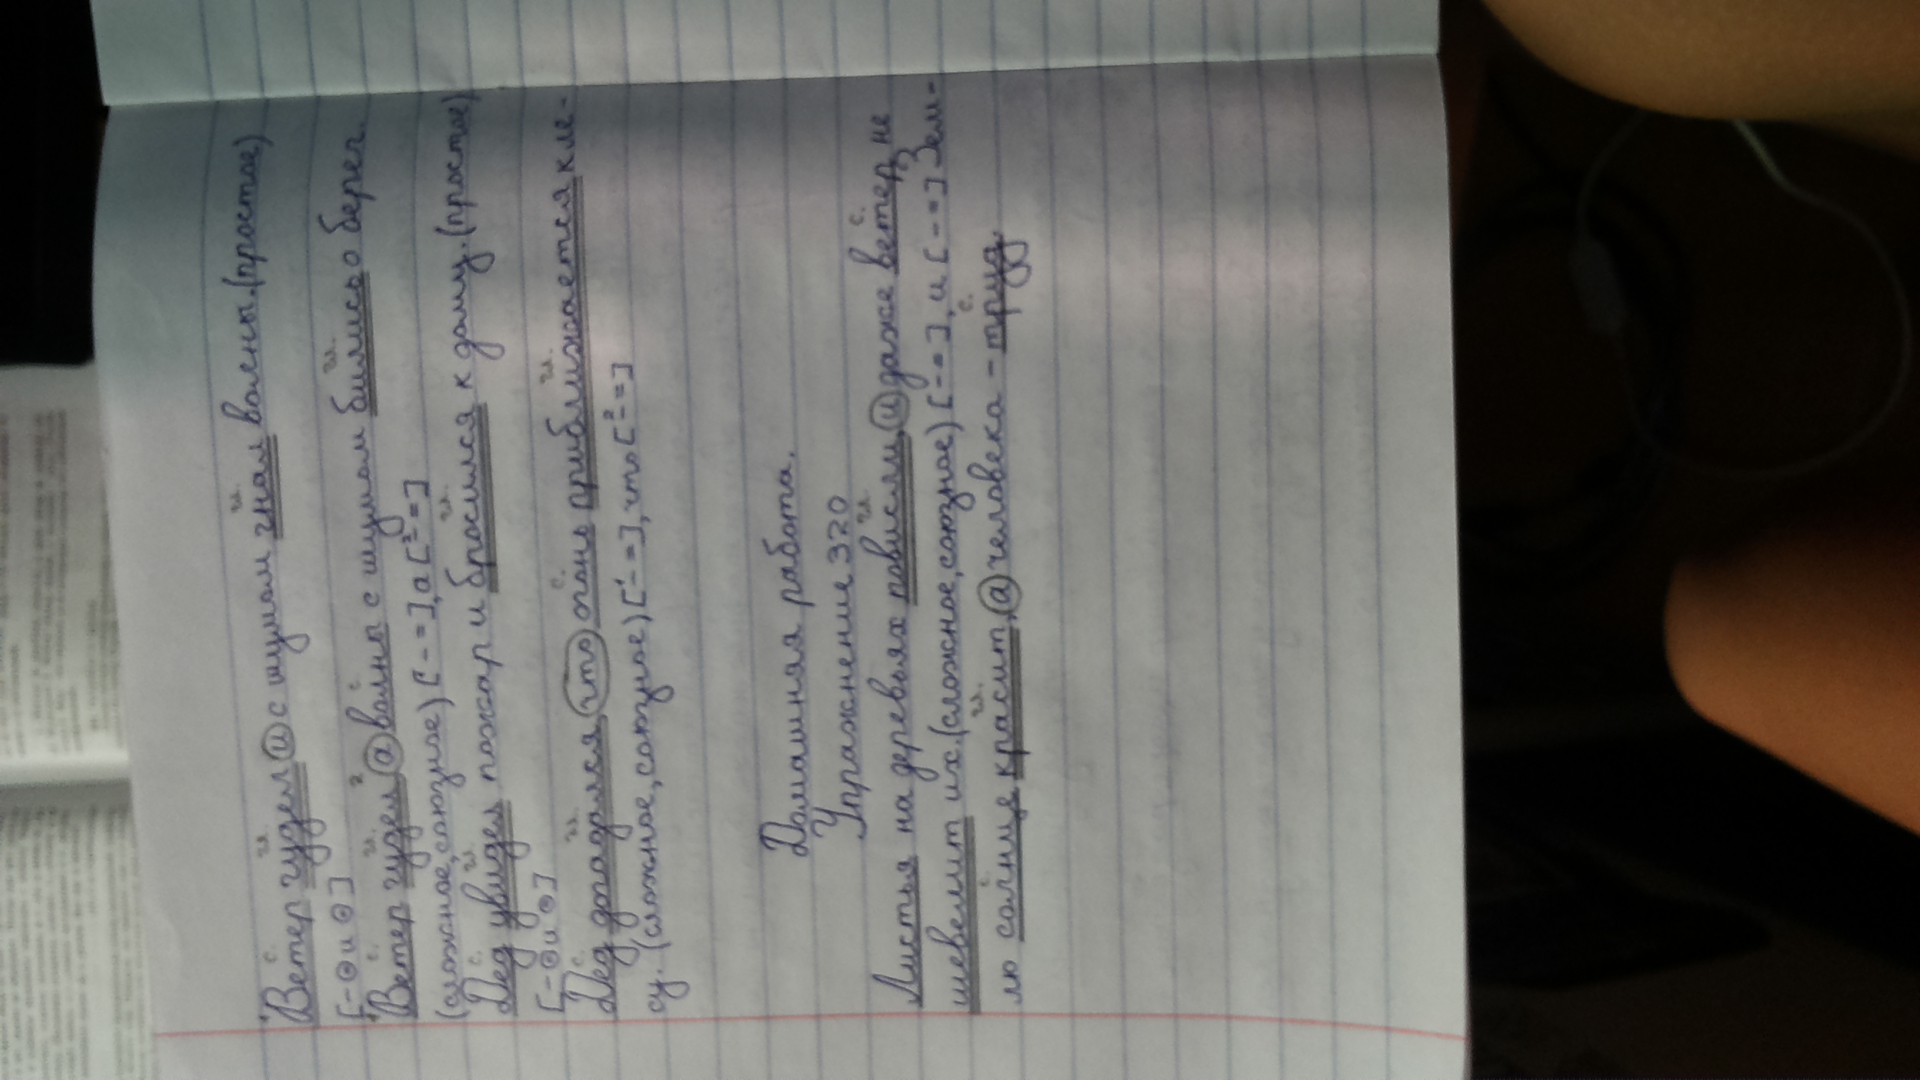 Ветер гудел и с шумом гнал волны. (простое)
[- = и =]
Ветер гудел, а волны с шумом бились о берег.
(сложное, союзное) [- =], а [- =]
Дед увидел пожар и бросился к дому. (простое)
[- = и =]
Дед догадался, что огонь приближается к ле-
су. (сложное, союзное) [- =], что [- =]
Домашняя работа.
Упражнение 320
Листья на деревьях повисли, и даже ветер не
шевелит их. (сложное, союзное) [- =], и [- =] Зем-
лю солнце красит, а человека - труд.